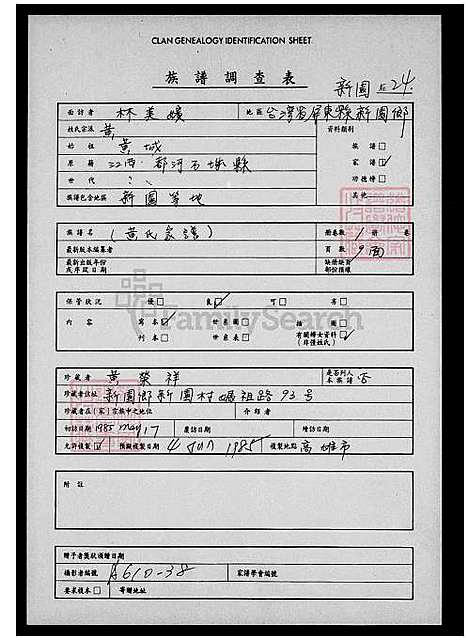 CLAN GENEALOGY IDENTIFICATION SHEET
族譜調查表
新園 24
面訪者 林美 地區 台灣省屏東縣新園鄉
姓氏宗派 黃 資料類別
始祖 黃城 族譜 □
原籍 江西 縣 家譜 ☑
世代 功德榜 □
族譜包含地區 新園等地 其他
族譜名 (黃氏家譜) 冊卷數 1 冊 卷
最新版本編纂者 頁數 9面
最新出版年份或序跋日期 缺冊缺頁部份預線
保管狀況 優 □ 良 ☑ 可 □ 劣 □
內容 寫本 ☑ 世系圖 □ 插圖 □
刊本 □ 世系表 □ 有關婦女資料 (非僅姓氏)
FamilySearch
珍藏者 黃榮祥 是否列入本族譜 否
珍藏者住址 新園鄉新園村媽祖路93号
珍藏者在(家)宗族中之地位 介紹者
初訪日期 1985 May 17 複訪日期 增訪日期
允許複製 ☑ 預擬複製日期 4 JUN 1985 複製地點 高雄市
附註
贈予者獎狀頒贈日期
攝影者編號 A610-38 家譜學會編號
要求複本 □ 寄贈地址